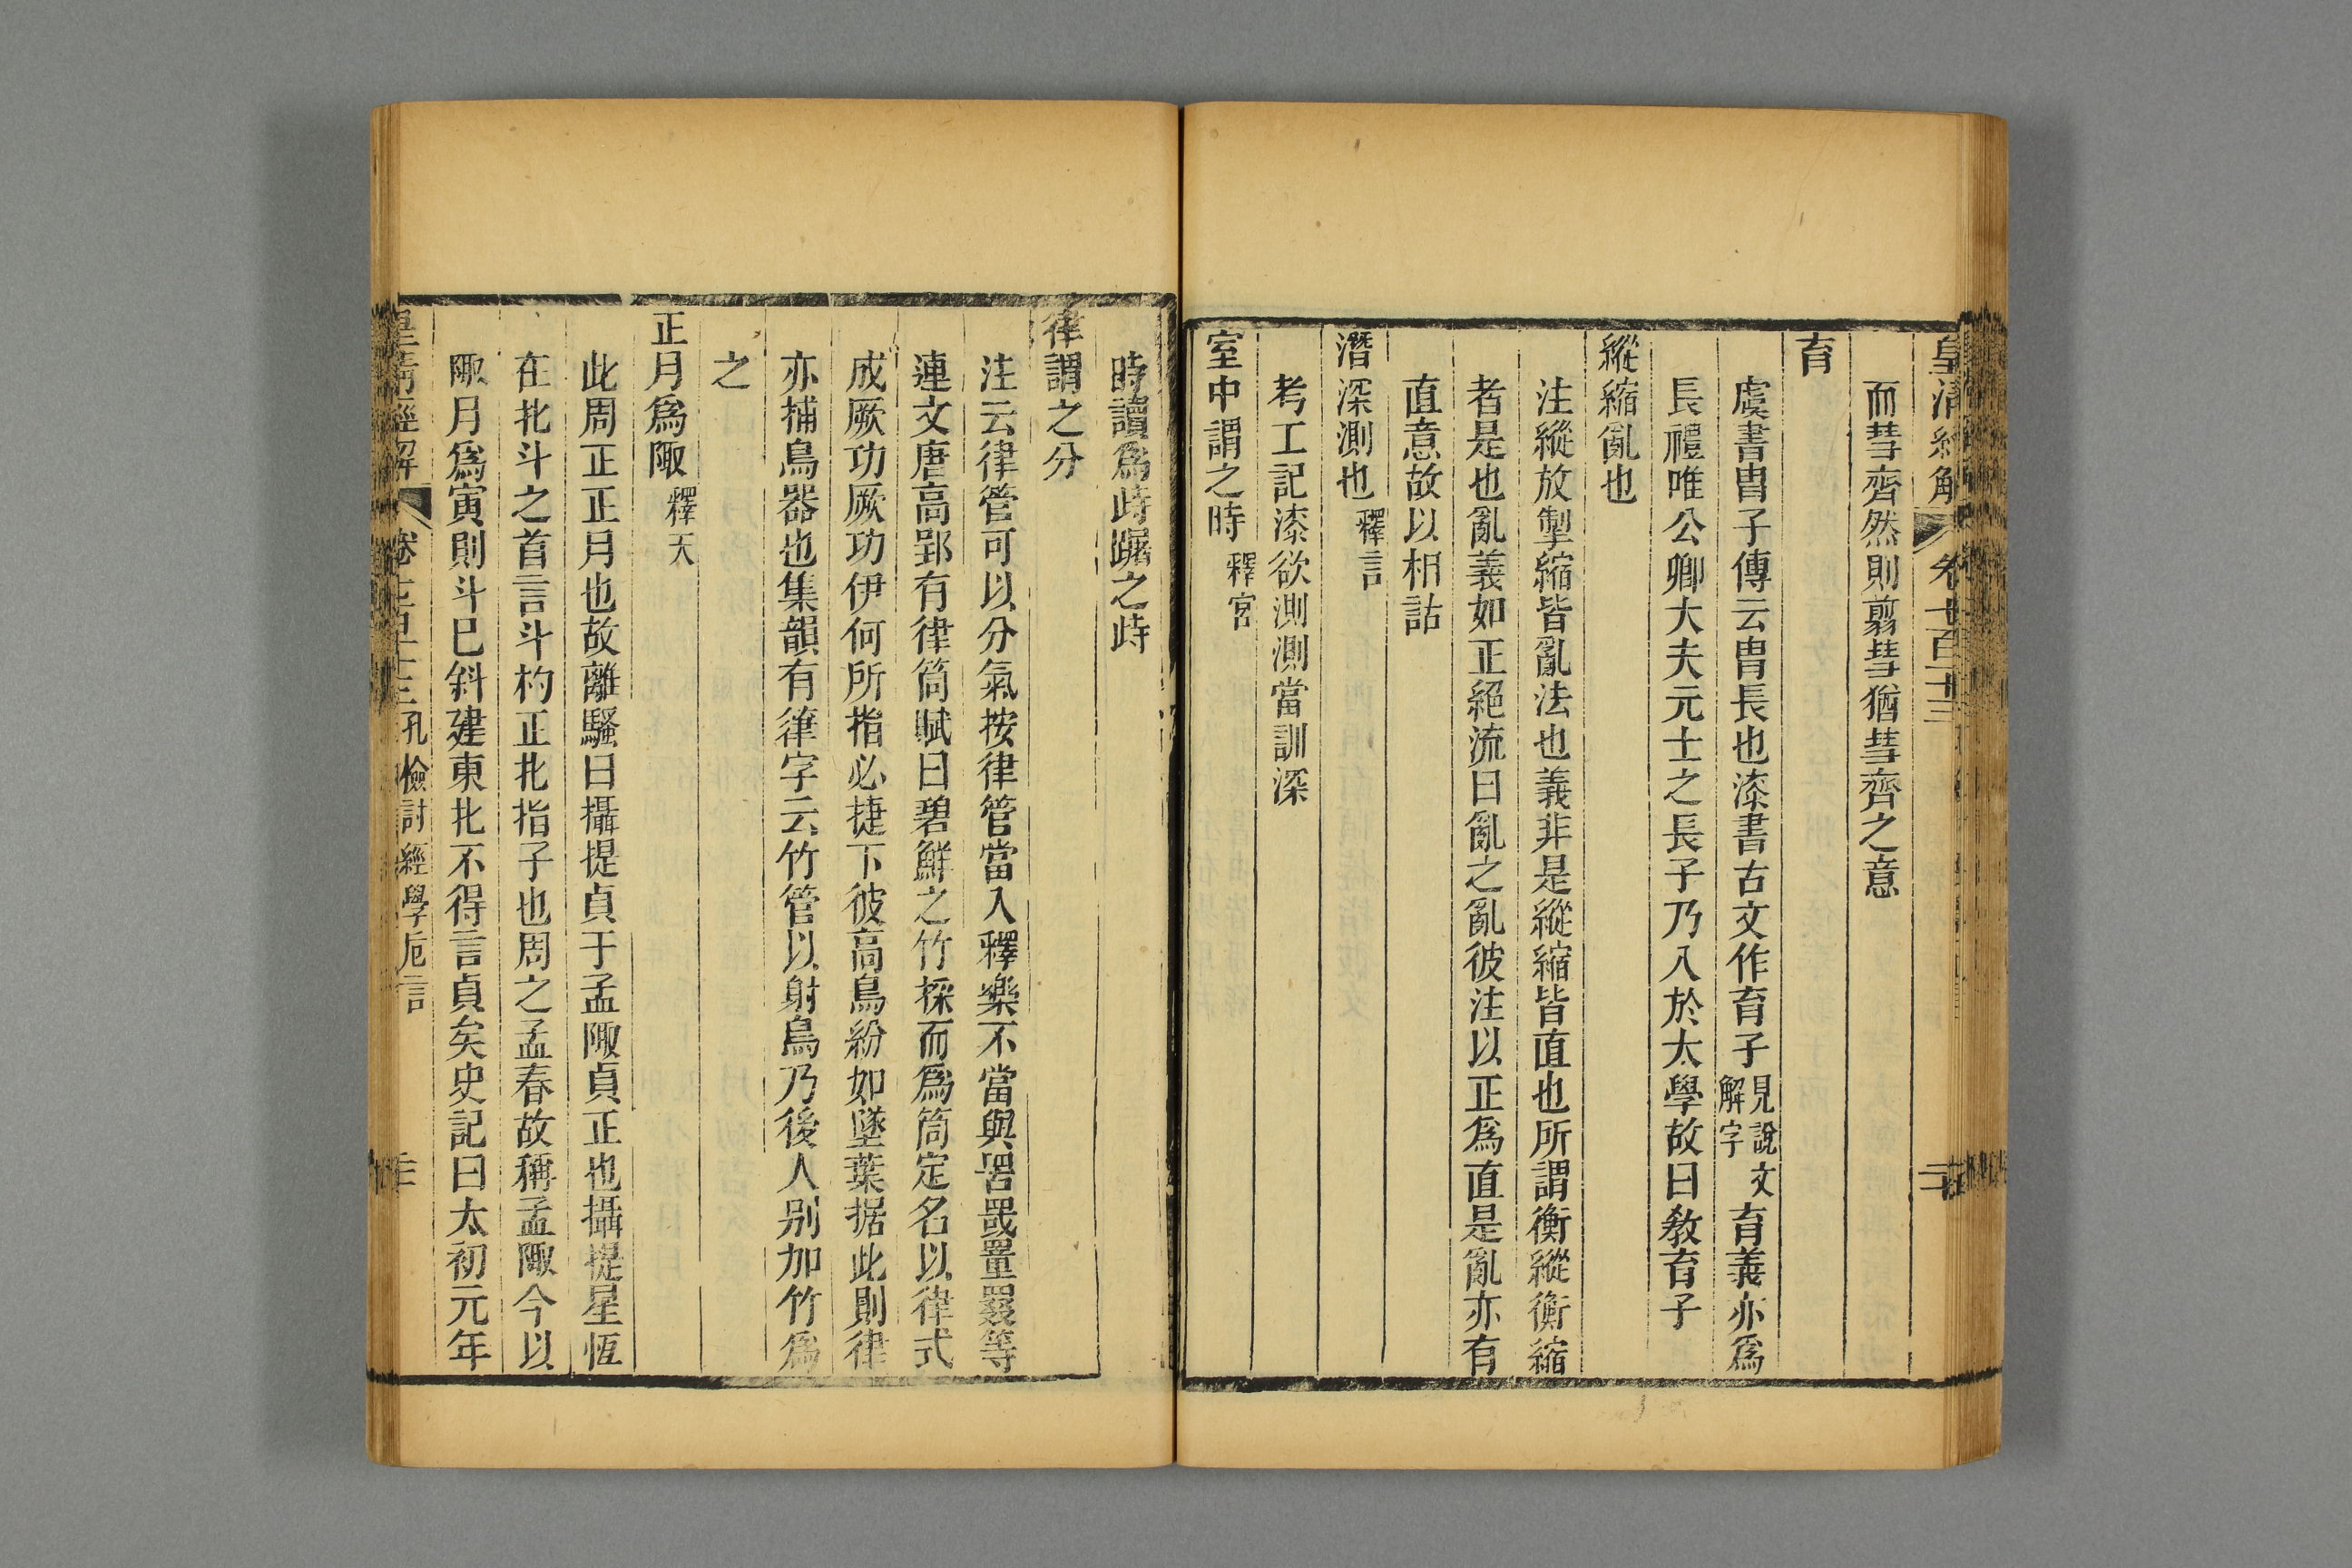 皇清經解 卷七百十三
而彗齊然則翦彗猶彗齊之意
育
虞書胄子傳云胄長也漆書古文作育子見說文解字育義亦爲
長禮唯公卿大夫元士之長子乃入於太學故曰敎育子
縱縮亂也
注縱放掣縮皆亂法也義非是縱縮皆直也所謂衡縱衡縮
者是也亂義如正絕流曰亂之亂彼注以正爲直是亂亦有
直意故以相詁
潛深測也釋言
考工記漆欲測測當訓深
室中謂之時釋宮
時讀爲峙躍之峙
律謂之分
注云律管可以分氣按律管當入釋樂不當與罟罬罿罠等
連文唐高郢有律筒賦曰碧鮮之竹採而爲筒定名以律式
成厥功厥功伊何所指必捷下彼高鳥紛如墜葉据此則律
亦捕鳥器也集韻有箻字云竹管以射鳥乃後人别加竹爲
之
正月爲陬釋天
此周正正月也故離騷曰攝提貞于孟陬貞正也攝提星恆
在北斗之首言斗杓正北指子也周之孟春故稱孟陬今以
陬月爲寅則斗已斜建東北不得言貞矣史記曰太初元年
皇淸經解 卷七百十三 孔檢討經學卮言